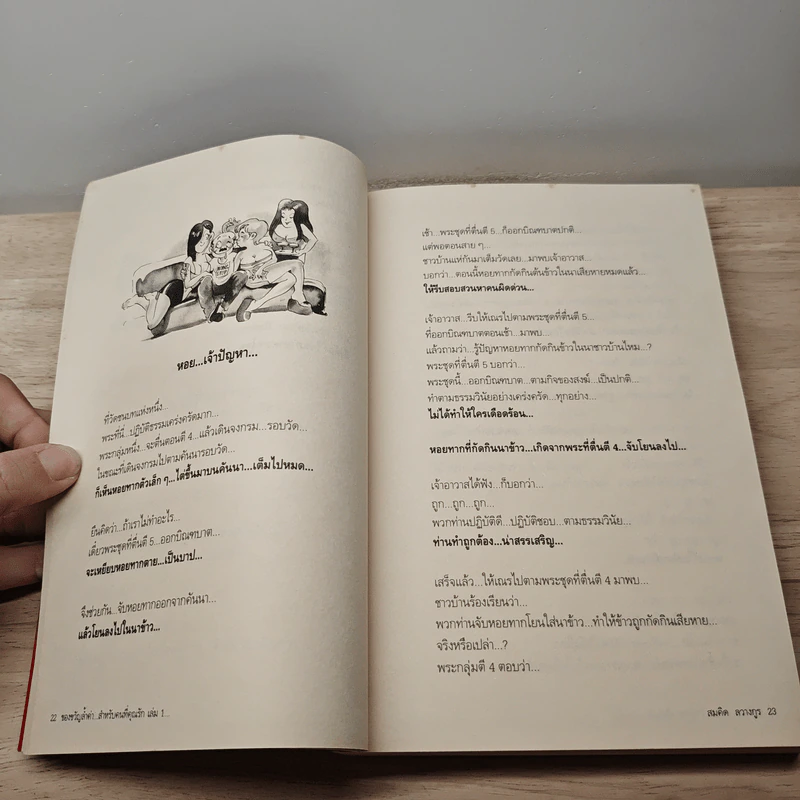 หอย...เจ้าปัญหา...
ที่วัดชนบทแห่งหนึ่ง...
พระที่นี่...ปฏิบัติธรรมเคร่งครัดมาก...
พระกลุ่มหนึ่ง...จะตื่นตอนตี 4...แล้วเดินจงกรม...รอบวัด...
ในขณะที่เดินจงกรมไปตามคันนารอบวัด...
ก็เห็นหอยทากตัวเล็ก ๆ...ไต่ขึ้นมาบนคันนา...เต็มไปหมด...
ยืนคิดว่า...ถ้าเราไม่ทำอะไร...
เดี๋ยวพระชุดที่ตื่นตี 5...ออกบิณฑบาต...
จะเหยียบหอยทากตาย...เป็นบาป...
จึงช่วยกัน...จับหอยทากออกจากคันนา...
แล้วโยนลงไปในนาข้าว...
22 ของขวัญล้ำค่า...สำหรับคนที่คุณรัก เล่ม 1...
เช้า...พระชุดที่ตื่นตี 5...ก็ออกบิณฑบาตปกติ...
แต่พอตอนสาย ๆ...
ชาวบ้านแห่กันมาเต็มวัดเลย...มาพบเจ้าอาวาส...
บอกว่า...ตอนนี้หอยทากกัดกินต้นข้าวในนาเสียหายหมดแล้ว...
ให้รีบสอบสวนหาคนผิดด่วน...
เจ้าอาวาส...รีบให้เณรไปตามพระชุดที่ตื่นตี 5...
ที่ออกบิณฑบาตตอนเช้า...มาพบ...
แล้วถามว่า...รู้ปัญหาหอยทากกัดกินข้าวในนาชาวบ้านไหม...?
พระชุดที่ตื่นตี 5 บอกว่า...
พระชุดนี้...ออกบิณฑบาต...ตามกิจของสงฆ์...เป็นปกติ...
ทำตามธรรมวินัยอย่างเคร่งครัด...ทุกอย่าง...
ไม่ได้ทำให้ใครเดือดร้อน...
หอยทากที่กัดกินนาข้าว...เกิดจากพระที่ตื่นตี 4...จับโยนลงไป...
เจ้าอาวาสได้ฟัง...ก็บอกว่า...
ถูก...ถูก...ถูก...
พวกท่านปฏิบัติดี...ปฏิบัติชอบ...ตามธรรมวินัย...
ท่านทำถูกต้อง...น่าสรรเสริญ...
เสร็จแล้ว...ให้เณรไปตามพระชุดที่ตื่นตี 4 มาพบ...
ชาวบ้านร้องเรียนว่า...
พวกท่านจับหอยทากโยนใส่นาข้าว...ทำให้ข้าวถูกกัดกินเสียหาย...
จริงหรือเปล่า...?
พระกลุ่มตี 4 ตอบว่า...
สมคิด ลวางกูร 23